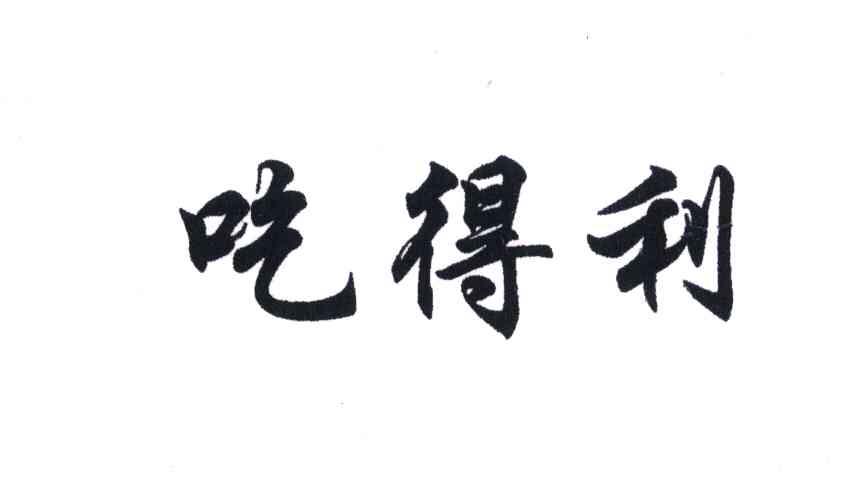 吃得利